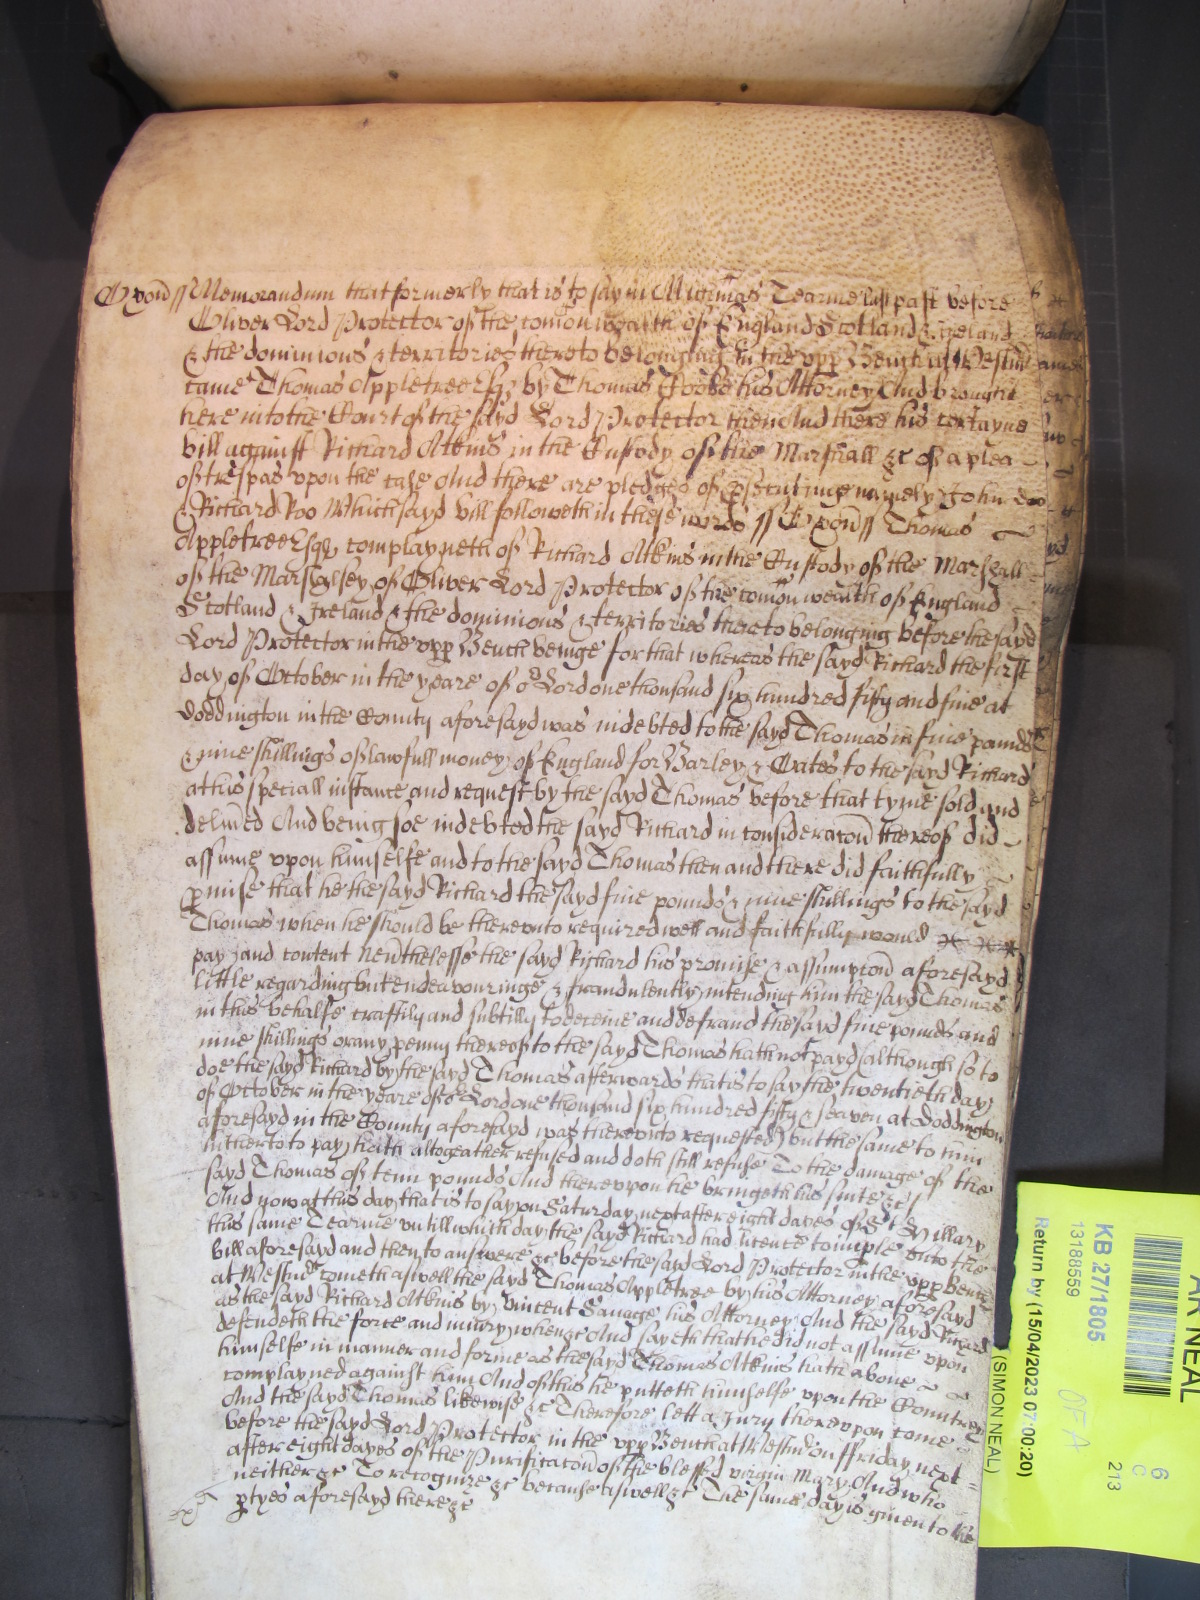 Oxon̄ // Memorandum that formerly that is to say in Mich̄mas Tearme last past before
Oliver Lord Protector of the com̄on wealth of England Scotland & Ireland
& the dominions & territories thereto belonging in the vpp Bench at Westmr
came Thomas Appletree Esqr by Thomas his Attorney And brought
here into the Court of the sayd Lord Protector then And there his certayne
bill against Richard Atkins in the Custody of the Marshall &c of a plea
of trespas vpon the case And there are pledges of p̱secutinge namely John Doo
& Richard Roo Which sayd bill followeth in these words // Oxon̄ // Thomas
Appletree Esqr complayneth of Richard Atkins in the Custody of the Marshall
of the Marshalsey of Oliver Lord Protector of the com̄on wealth of England
Scotland & Ireland & the dominions & territories thereto belonging before the sayd
Lord Protector in the vpp Bench beinge for that whereas the sayd Richard the first
day of October in the yeare of or Lord one thousand six hundred fifty and fiue at
Doddington in the County aforesayd was indebted to the sayd Thomas in fiue pounds
& nine shillings of lawfull money of England for Barley & Oates to the sayd Richard
at his speciall instance and request by the sayd Thomas before that tyme sold and
deliu̅ed And being soe indebted the sayd Richard in consideracōn thereof did
assume vpon himselfe and to the sayd Thomas then and there did faithfully
p̱mise that he the sayd Richard the sayd fiue pounds & nine shillings to the sayd
Thomas when he should be therevnto required well and faithfully would
pay and content Neu̅thelesse the sayd Richard his promise & assumpcōn aforesayd
little regarding but endeavouringe & fraudulently intending him the sayd Thomas
in this behalfe craftily and subtilly to deceiue and defraud the sayd fiue pounds and
nine shillings or any penny thereof to the sayd Thomas hath not payd (although so to
doe the sayd Richard by the sayd Thomas afterwards that is to say the twentieth day
of October in the yeare of or Lord one thousand six hundred fifty & seaven at Doddington
aforesayd in the County aforesayd was therevnto requested) but the same to him
hitherto to pay hath altogeather refused and doth still refuse To the damage of the
sayd Thomas of tenn pounds And therevpon he bringeth his suite &c
And now at this day that is to say on Saturday next after eight dayes of St Hillary
this same Tearme vntill which day the sayd Richard had licence to imple vnto the
bill aforesayd and then to answere &c before the sayd Lord Protector in the vpp Bench
at Westmr cometh aswell the sayd Thomas Appletree by his Attorney aforesayd
as the sayd Richard Atkins by Vincent Sauage his Attorney And the sayd Richard
defendeth the force and iniury when &c And sayeth that he did not assume vpon
himselfe in manner and forme as the sayd Thomas Atkins hath aboue
complayned against him And of this he putteth himselfe vpon the Countrey
And the sayd Thomas likewise &c Therefore lett a Jury therevpon come
before the sayd Lord Protector in the vpp Bench at Westmr on ffriday next
after eight dayes of the Purificacōn of the blessed virgin Mary And who
neither &c To recognize &c because aswell &c The same day is giuen to the
p̱tyes aforesayd there &c
AR NEAL
KB 27/1805
13188559
Return by (15/04/2023 07:00:20)
(SIMON NEAL)
6
C
213